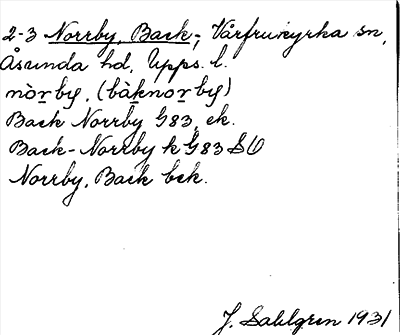 2-3 Norrby, Back-; Vårfrukyrka sn,
Åsunda hd, Upps. l.
nòrby, (bàknorby)
Back Norrby G83, ek.
Back-Norrby k G83 SO
Norrby, Back bek.
J. Sahlgren 1931